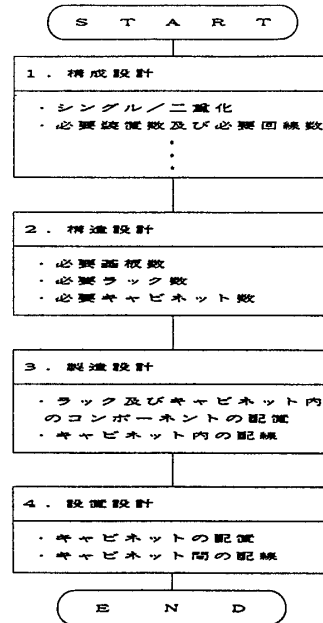 START
1. 構成設計
・シングル／二重化
・必要装置数及び必要回線数
・
・
・
2. 構造設計
・必要基板数
・必要ラック数
・必要キャビネット数
3. 製造設計
・ラック及びキャビネット内
のコンポーネントの配置
・キャビネット内の配線
4. 設置設計
・キャビネットの配置
・キャビネット間の配線
END